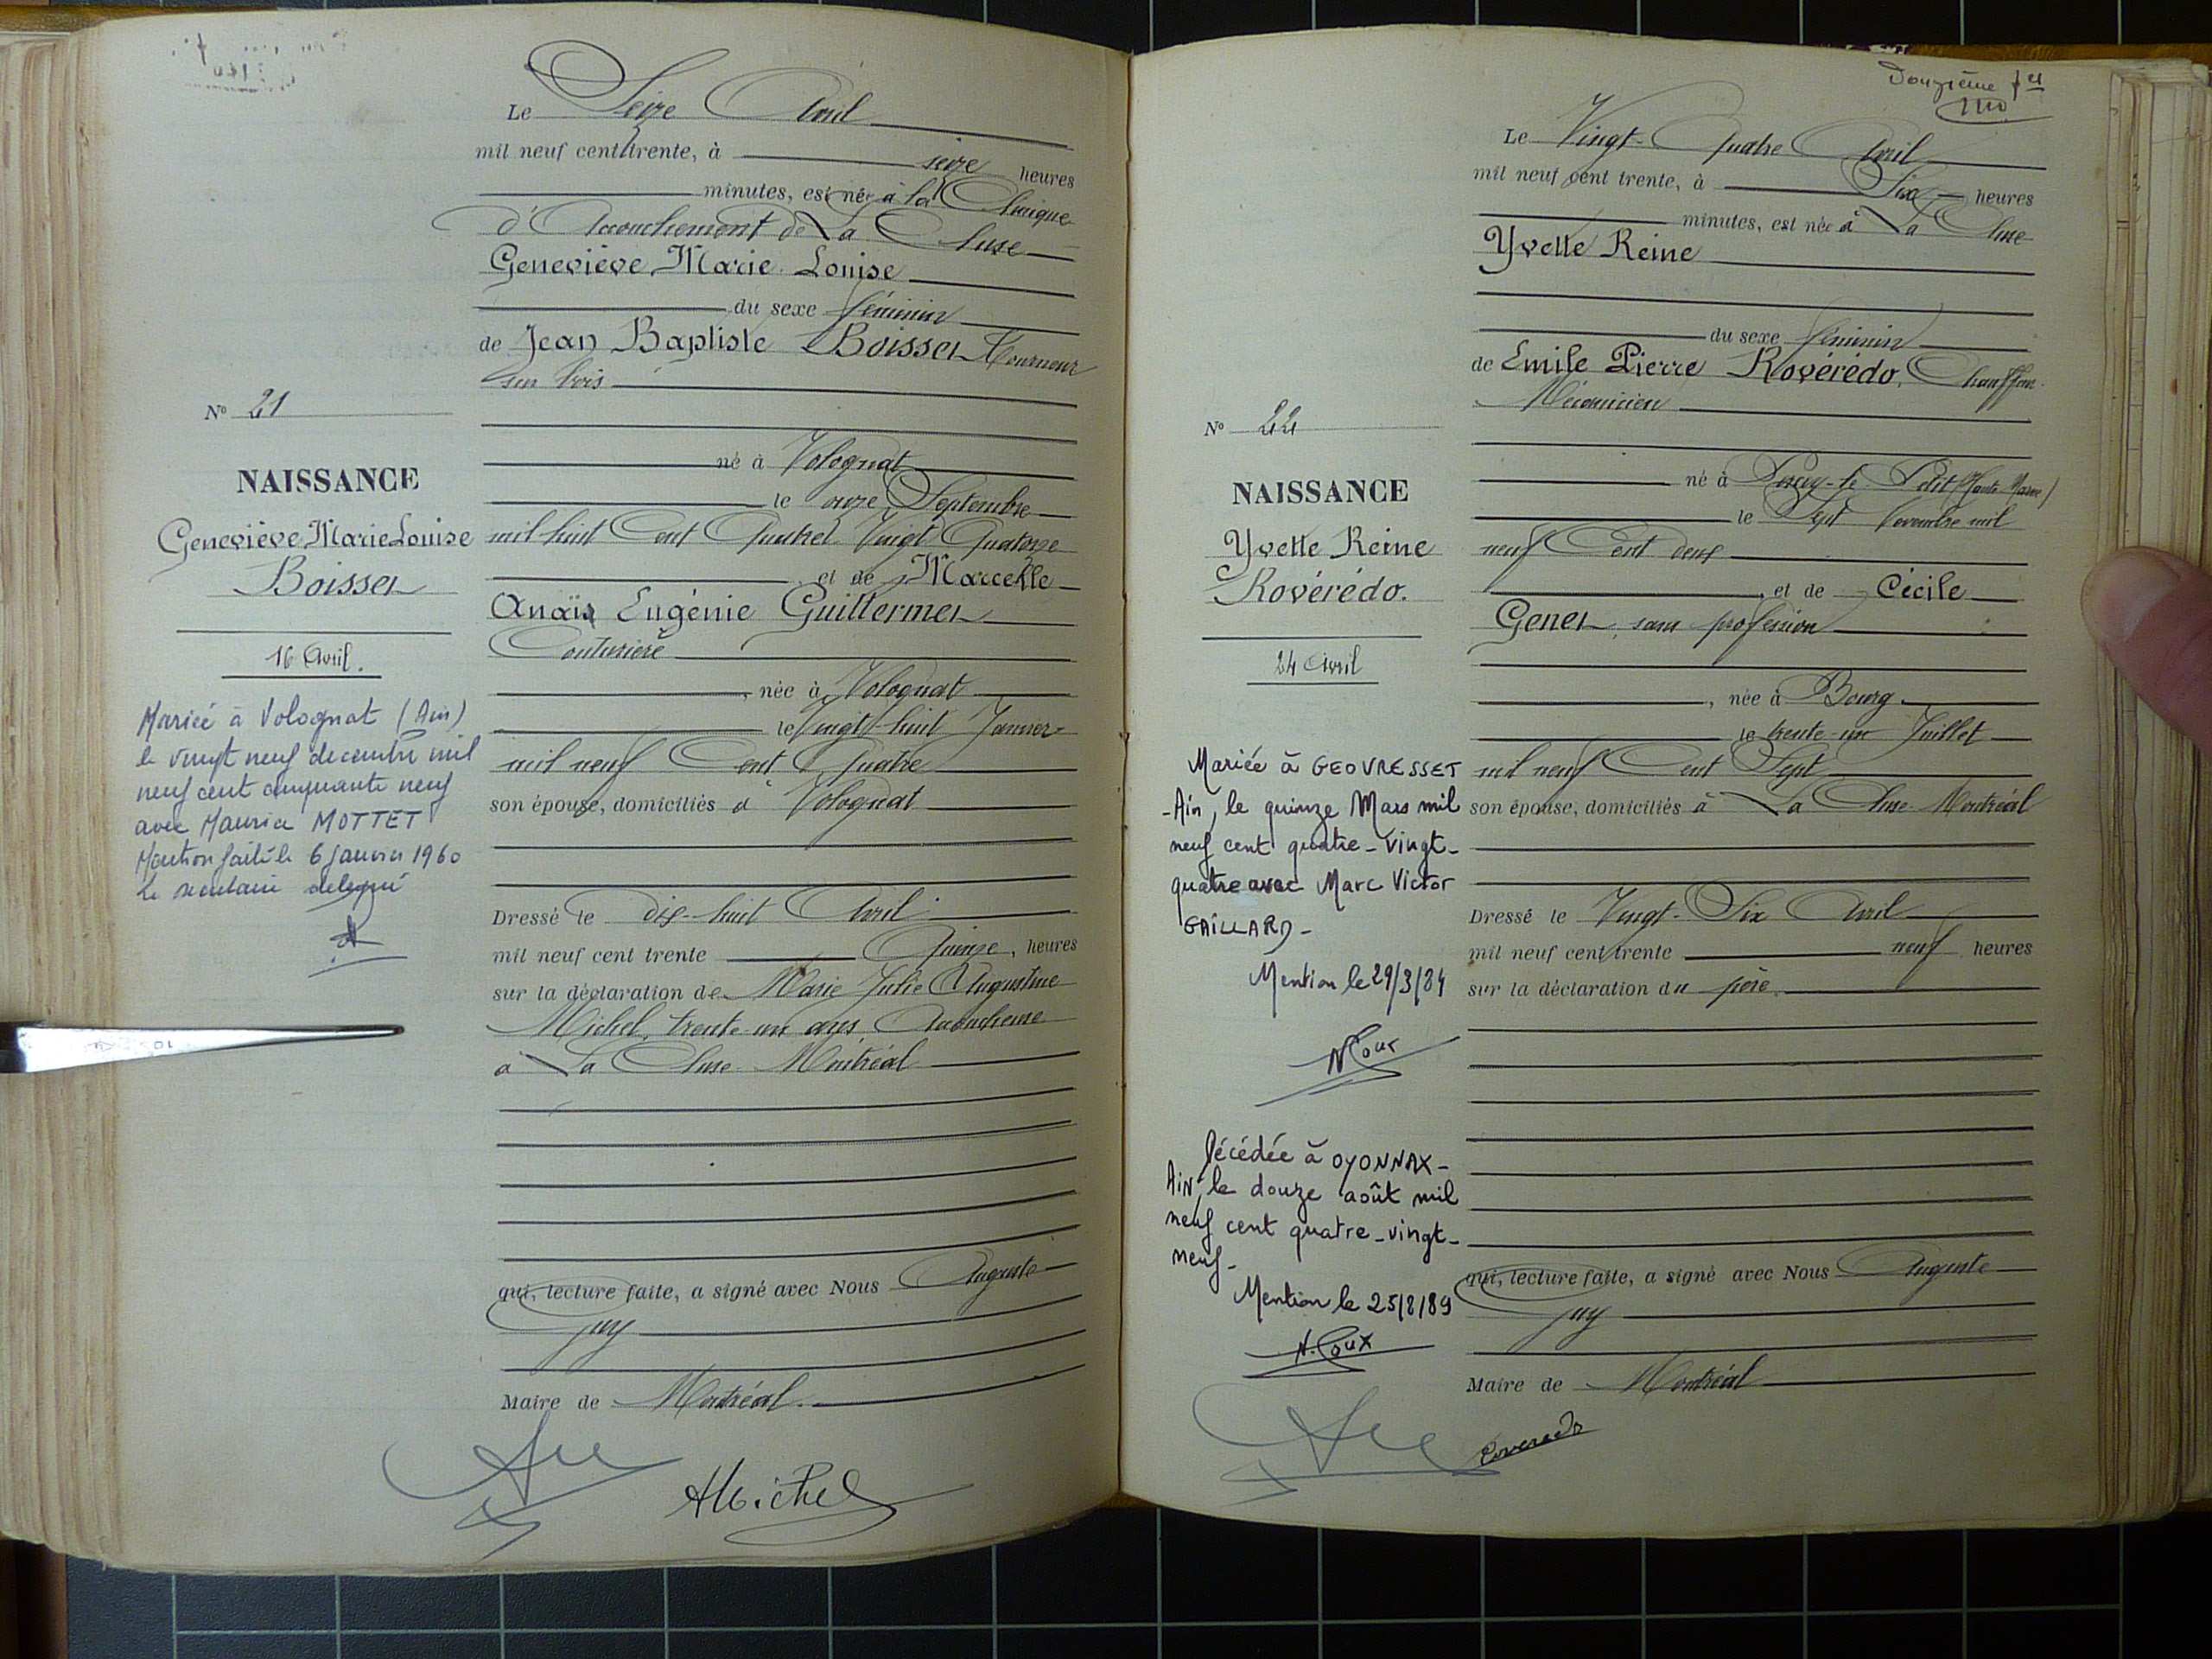 Le Seize Avril
mil neuf cent trente, à seize heures
minutes, est née à la Clinique
d'Accouchement de La Cluse
Geneviève Marie Louise
du sexe féminin
de Jean Baptiste Boisset Tourneur
sur bois
N° 21
NAISSANCE
Geneviève Marie Louise
Boisset
16 Avril.
né à Volognat
le onze Septembre
mil huit Cent Quatre Vingt Quatorze
et de Marcelle
Anaïs Eugénie Guillermet
Couturière
, née à Volognat
le Vingt-huit Janvier
mil neuf Cent Quatre
son épouse, domiciliés à Volognat
Mariée à Volognat (Ain)
le vingt neuf decembre mil
neuf cent cinquante neuf
avec Maurice MOTTET
Mention faite le 6 janvier 1960
Le secrétaire delegué
Dressé le dix-huit Avril
mil neuf cent trente Quinze, heures
sur la déclaration de Marie Julie Augustine
Michel, trente-un ans, Accoucheuse
à La Cluse-Montréal
qui, lecture faite, a signé avec Nous Auguste
Guy
Maire de Montréal.
AMichel
Douzième fet
Le Vingt-Quatre Avril
mil neuf cent trente, à Six heures
minutes, est née à La Cluse
Yvette Reine
du sexe féminin
de Emile Pierre Rovérédo, Chauffeur-
Mécanicien
N° 22
NAISSANCE
Yvette Reine
Rovérédo.
24 Avril
né à Percey-le-Petit (Haute Marne)
le Sept Novembre mil
neuf Cent deux
, et de Cécile
Genet, sans profession
, née à Bourg
le trente-un Juillet
mil neuf Cent Sept
son épouse, domiciliés à La Cluse-Montréal
Mariée à GEOVRESSET
-Ain, le quinze Mars mil
neuf cent quatre-vingt-
quatre avec Marc Victor
GAILLARD-
Mention le 29/3/84
N Roux
Décédée à OYONNAX-
AiN, le douze août mil
neuf cent quatre-vingt-
neuf-
Mention le 25/8/89
N. Roux
Dressé le Vingt-Six Avril
mil neuf cent trente neuf heures
sur la déclaration du père.
qui, lecture faite, a signé avec Nous Auguste
Guy
Maire de Montréal
Roveredo